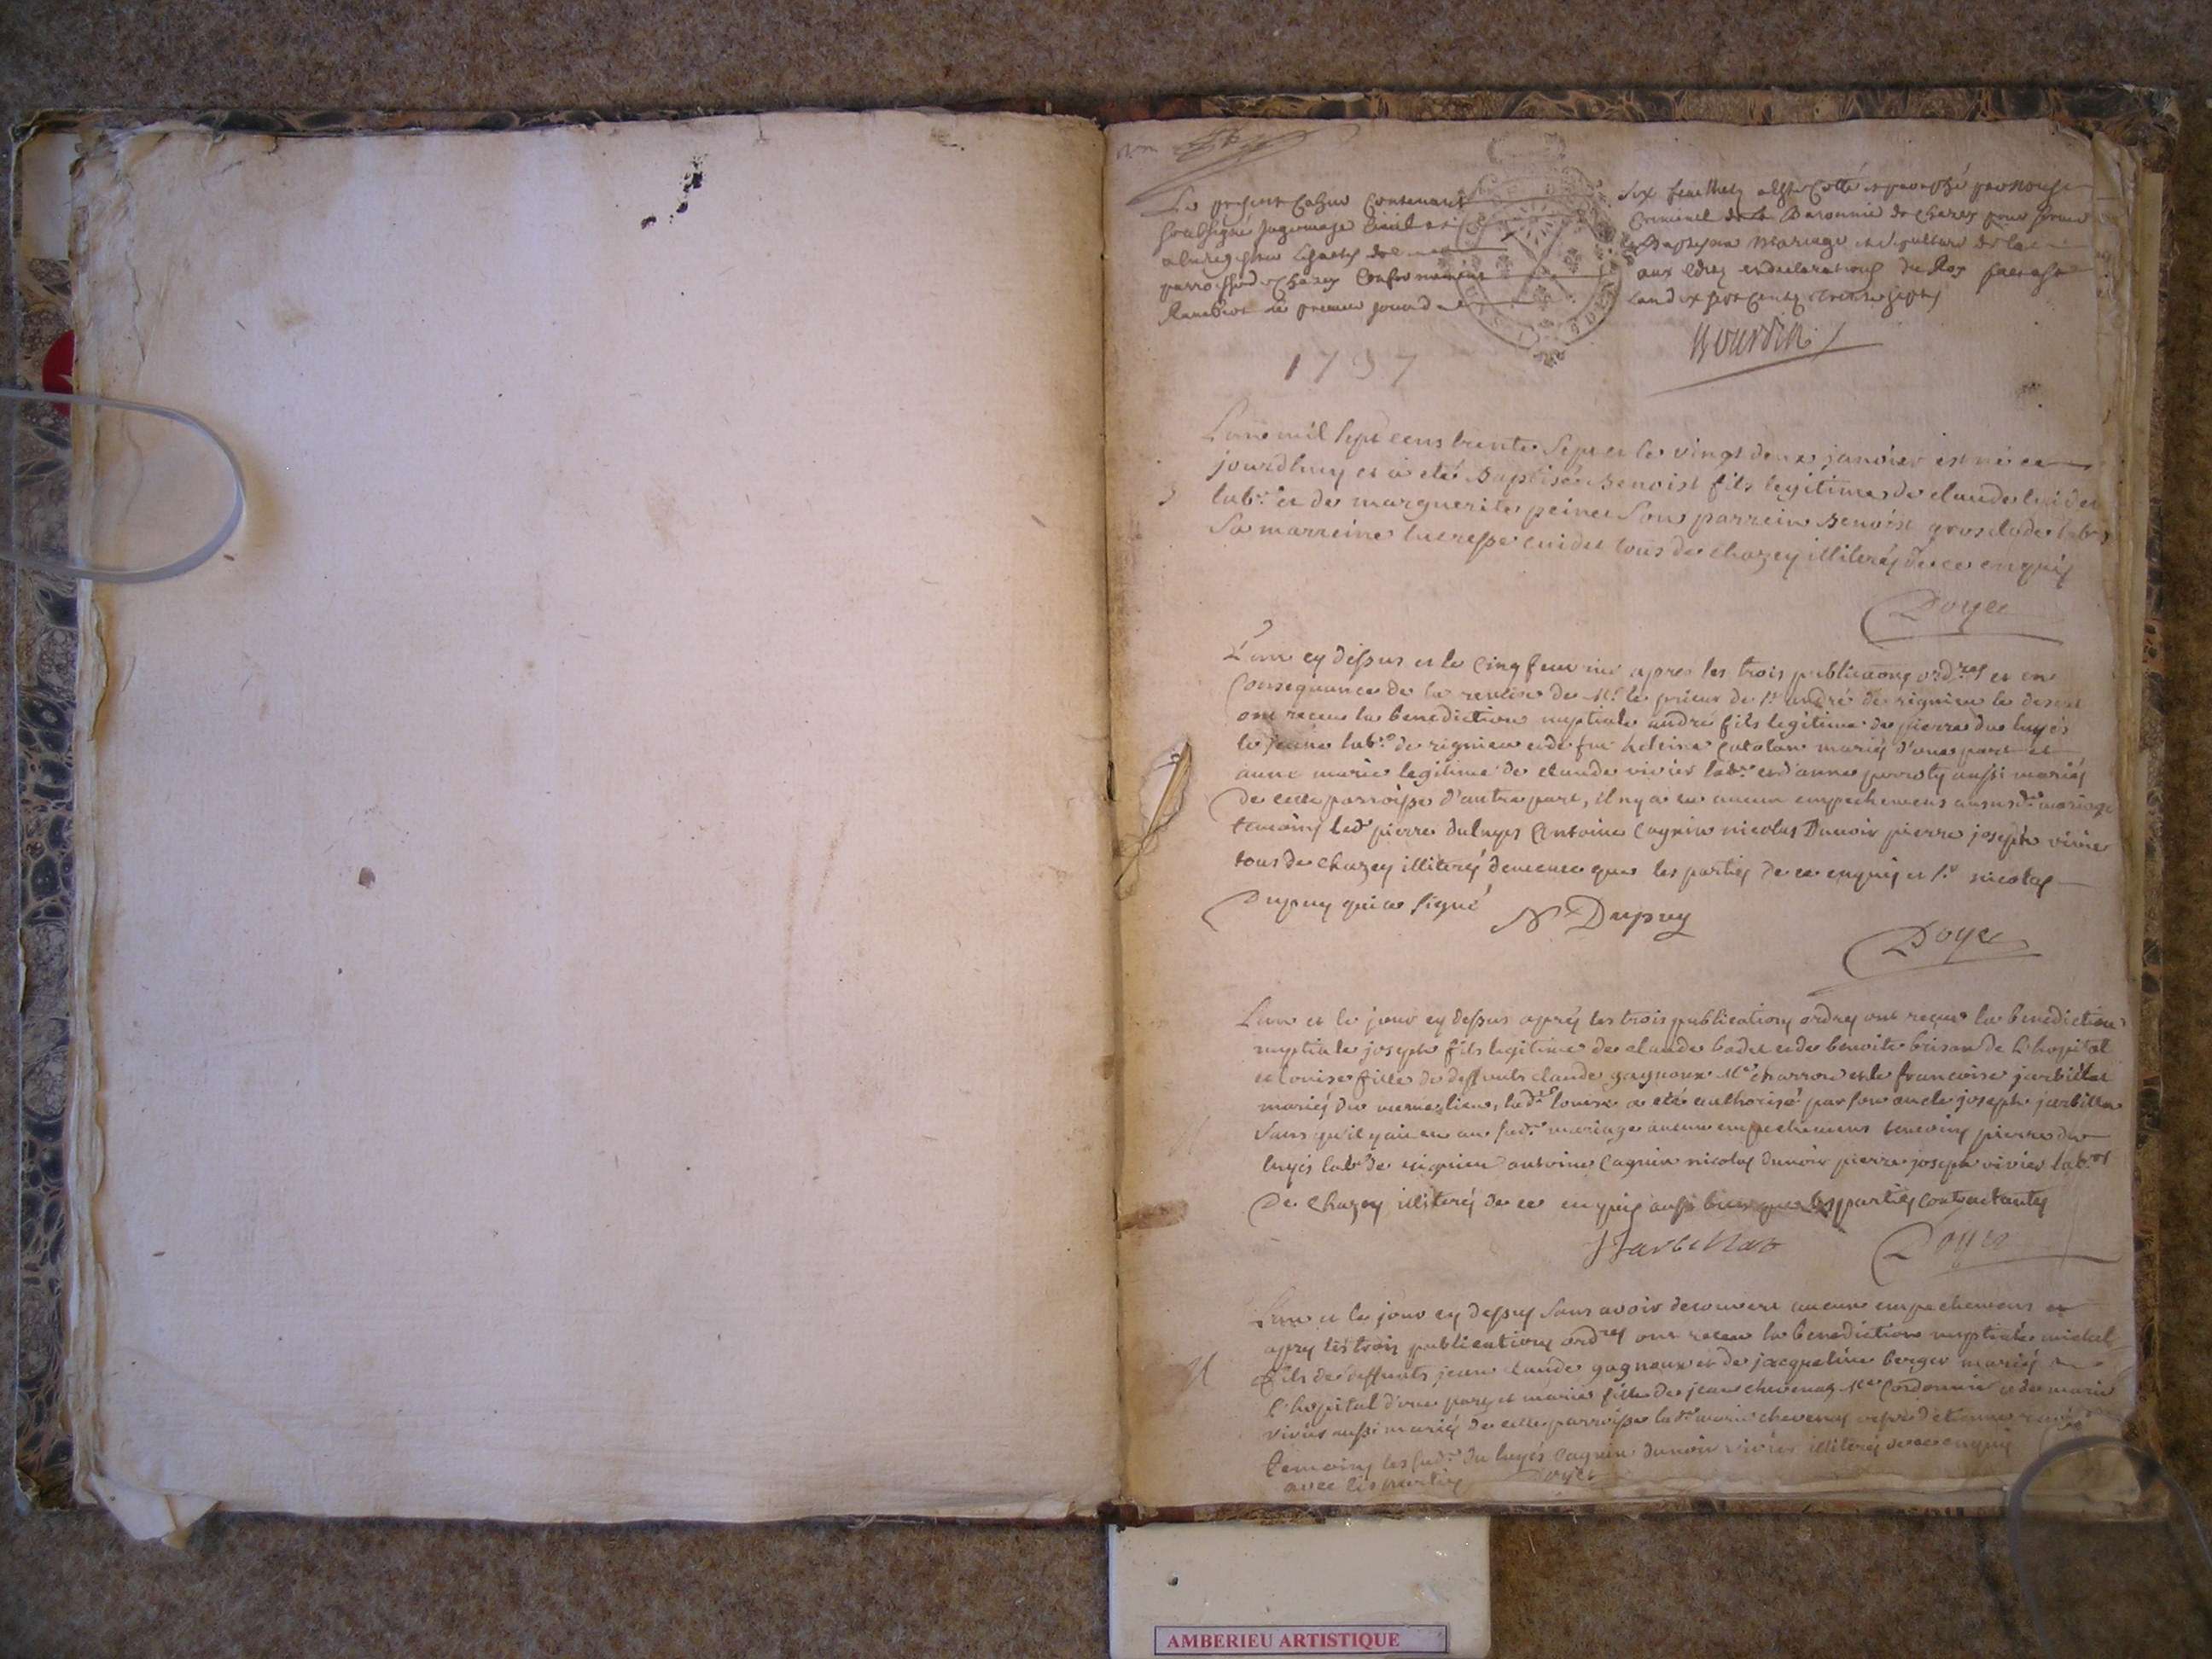 Le present Cahier Contenant six feuillets a esté Cotté et paraphé par nous
soussigné juge mage Civil et Criminel de la Baronnie de Chazey pour servir
a enregistrer les actes de Baptesme mariage et sepulture de la
parroisse de Chazey Conformement aux edits et declarations du Roy fait a St
Rambert ce premier jour de lan dix sept cents trente sept
Bourdin
1737
L'an mil sept cens trente sept et le vingt deux janvier est né ce
jourdhuy et a eté Baptisé Benoist fils legitime de claude cuidet
labr. et de marguerite peinet son parrein Benoist grosclode labr
Sa marreine lucresse cuidet tous de chazey illiterés de ce enquis
Doyer
L'an cy dessus et le cinq feuvrier apres les trois publicaons ordres et en
Consequance de la remise de Mr. le prieur de st. andré de rignieu le desert
ont receu la benediction nuptiale andré fils legitime de pierre du luyés
le jeune labr. de rignieu et de fue heleine Catolan mariés d'une part et
anne marie legitime de claude vivier labr. et d'anne perroty aussi mariés
de cette parroisse d'autre part, il ny a eu aucun empechemens au susd. mariage
temoins led. pierre duluyés Antoine Cagnin nicolas Dunoir pierre joseph vivier
tous de chazey illiterés de mesme que les parties de ce enquis et sr. nicolas
Dupuy qui a signé N Dupuy
Doyer
L'an et le jour cy dessus aprés les trois publications ordres ont reçeu la benediction
nuptiale joseph fils legitime de claude badet et de benoite brison de L'hopital
et louise fille de deffunts claude gagnoux Me charron et de francoise jarbillet
mariés du mesme lieu, lad. louise a eté authorisé par son oncle joseph jarbillet
sans qu'il y ait eu au sud. mariage aucun empechemens temoins pierre du
luyés labr de rignieu antoine Cagnin nicolas dunoir pierre joseph vivier labrs
de Chazey illiterés de ce enquis aussi bien que les parties contractantes
J Jarbillat Doyer
L'an et le jour cy dessus sans avoir decouvert aucun empechemens et
apres les trois publications ordres ont receu la benediction nuptiale michel
fils de deffunts jean claude gagnoux et de jacqueline berger mariés
L'hopital d'une part et marie fille de jean chevenay Me Cordonnier et de marie
vivier aussi mariés de cette parroisse lad. marie chevenay
temoins les sud. du luyés Cagnin dunoir vivier illiterés de ce enquis
avec les parties Doyer
AMBERIEU ARTISTIQUE